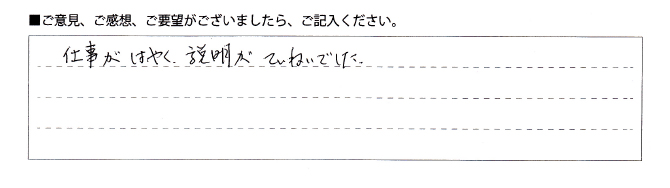 ■ご意見、ご感想、ご要望がございましたら、ご記入ください。
仕事が はやく、説明が ていねいでした。